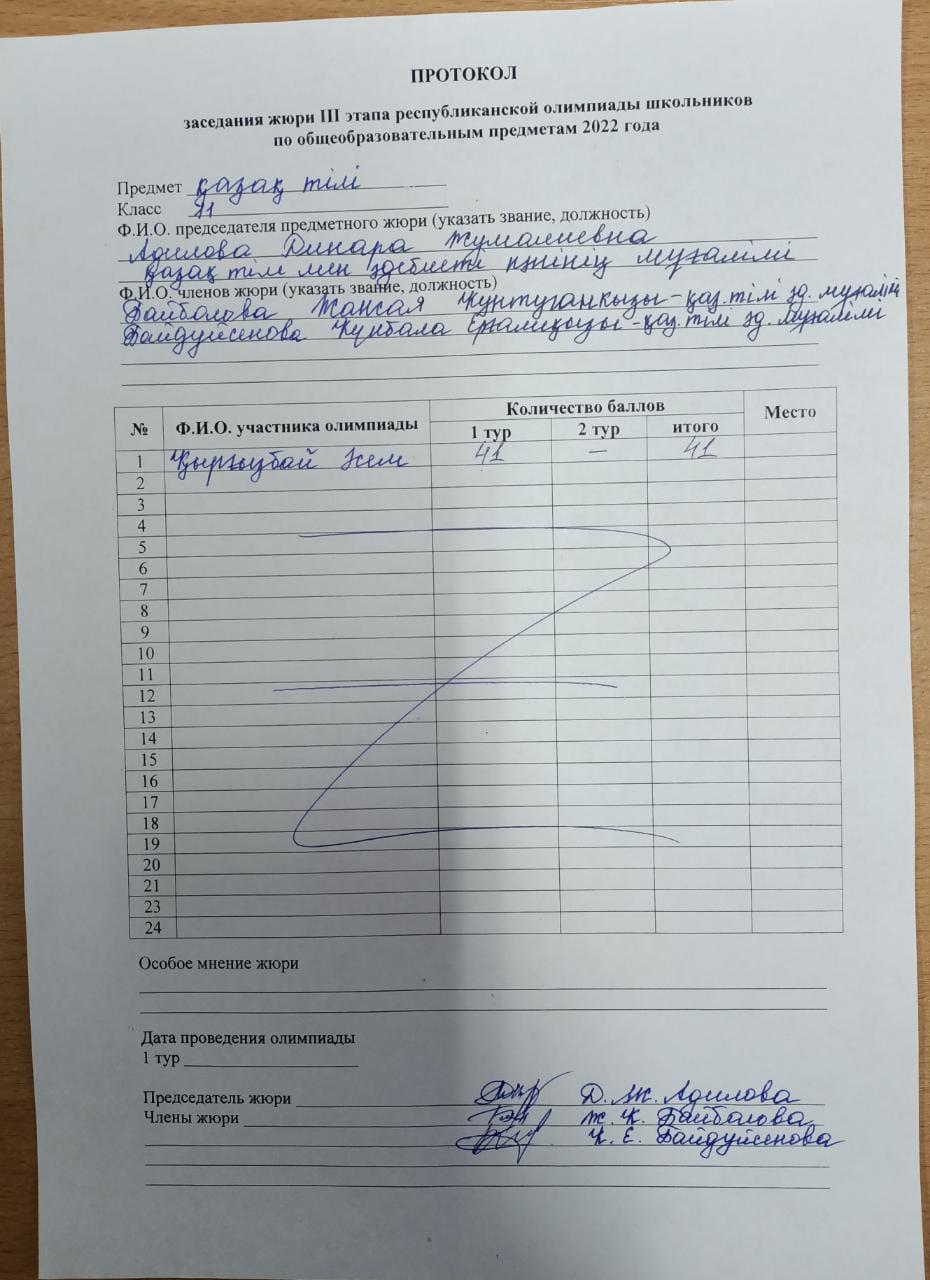 ПРОТОКОЛ
заседания жюри III этапа республиканской олимпиады школьников
по общеобразовательным предметам 2022 года
Предмет қазақ тілі
Класс 11
Ф.И.О. председателя предметного жюри (указать звание, должность)
Адилова Динара Жумалиевна
қазақ тілі мен әдебиеті пәнінің мұғалімі
Ф.И.О. членов жюри (указать звание, должность)
Жансая - қаз.тілі әд. мұғалімі
Байдуйсенова Кунбала - қаз.тілі әд. мұғалімі
№ Ф.И.О. участника олимпиады Количество баллов Место
1 тур 2 тур итого
1 41 — 41
2
3
4
5
6
7
8
9
10
11
12
13
14
15
16
17
18
19
20
21
23
24
Особое мнение жюри
Дата проведения олимпиады
1 тур
Председатель жюри Д. Ж. Адилова
Члены жюри Ж. К.
К. Е. Байдуйсенова